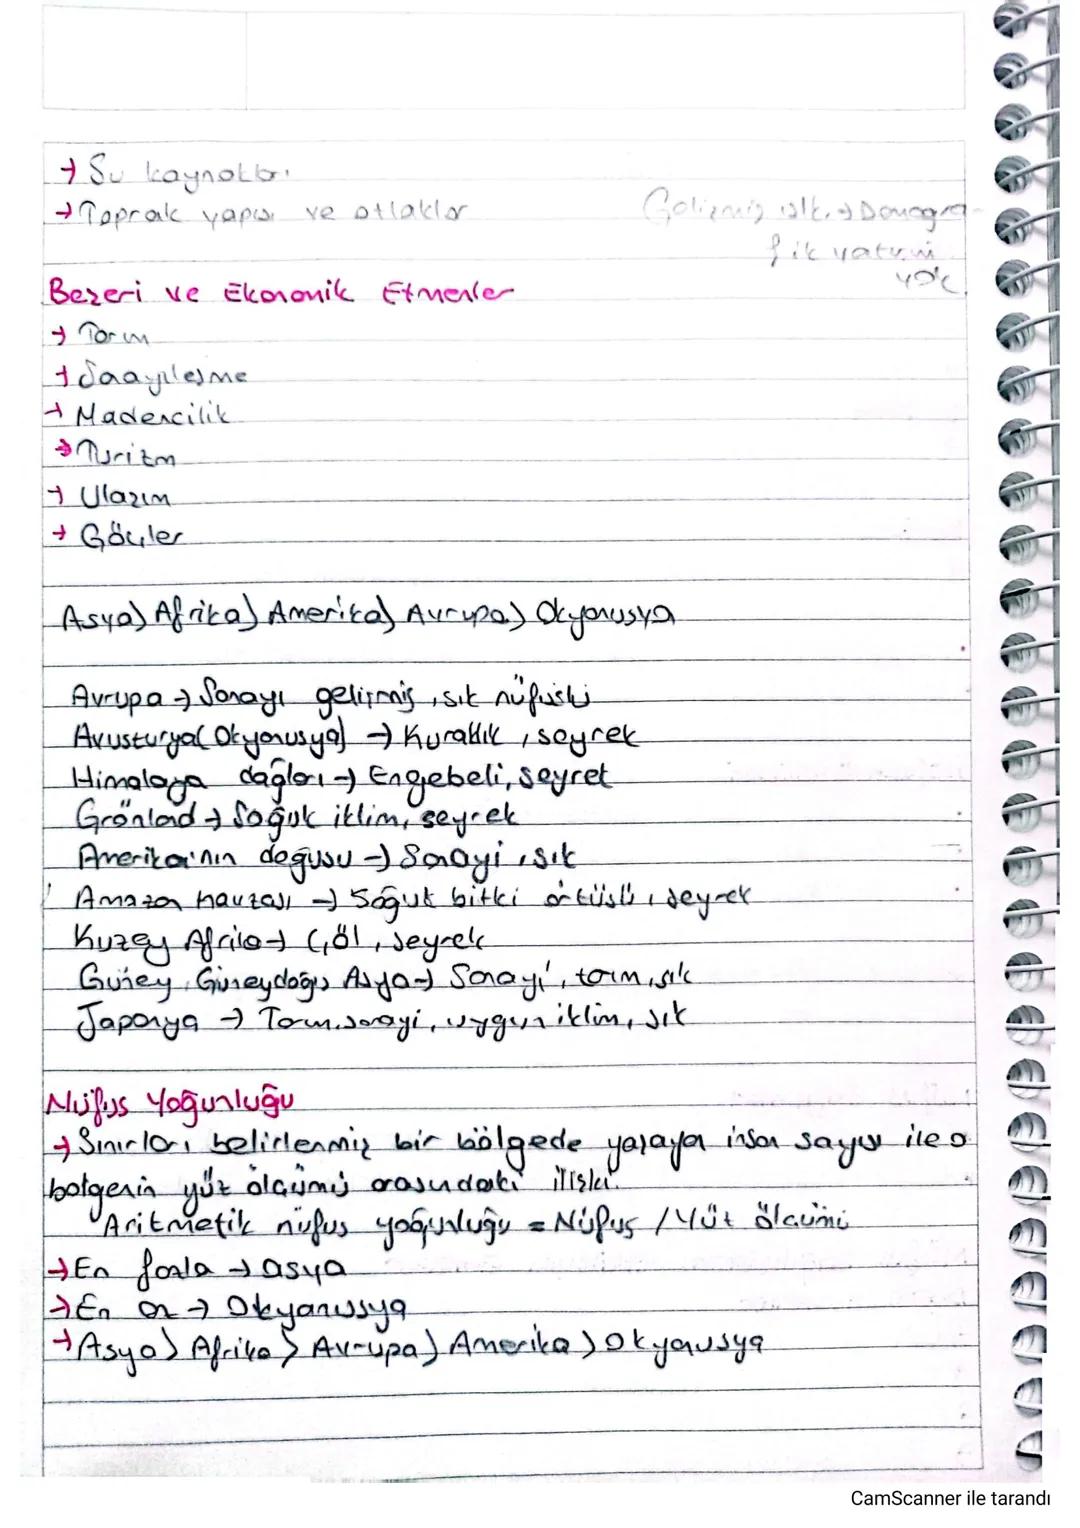 → Su kaynakları
→ Toprak yapısı ve otlaklar
Gelişmiş ülk. → Demogra-
fik yatırım
yok
Beşeri ve Ekonomik Etmenler
→ Tarım
→ Sanayileşme
→ Madencilik
→ Turizm
→ Ulaşım
→ Göçler
Asya > Afrika > Amerika > Avrupa > Okyanusya
Avrupa → Sanayi gelişmiş, sık nüfuslu
Avusturya (Okyanusya) → Kuraklık, seyrek
Himalaya dağları → Engebeli, seyrek
Grönland → Soğuk iklim, seyrek
Amerika'nın doğusu → Sanayi, sık
Amazon havzası → Soğuk bitki örtüsü, seyrek
Kuzey Afrika → Çöl, seyrek
Güney, Güneydoğu Asya → Sanayi, tarım, sık
Japonya → Tarım, sanayi, uygun iklim, sık
Nüfus Yoğunluğu
→ Sınırları belirlenmiş bir bölgede yaşayan insan sayısı ile o
bölgenin yüz ölçümü arasındaki ilişki.
Aritmetik nüfus yoğunluğu = Nüfus / Yüz ölçümü
→ En fazla → asya
→ En az → Okyanusya
→ Asya > Afrika > Avrupa > Amerika > Okyanusya
CamScanner ile tarandı